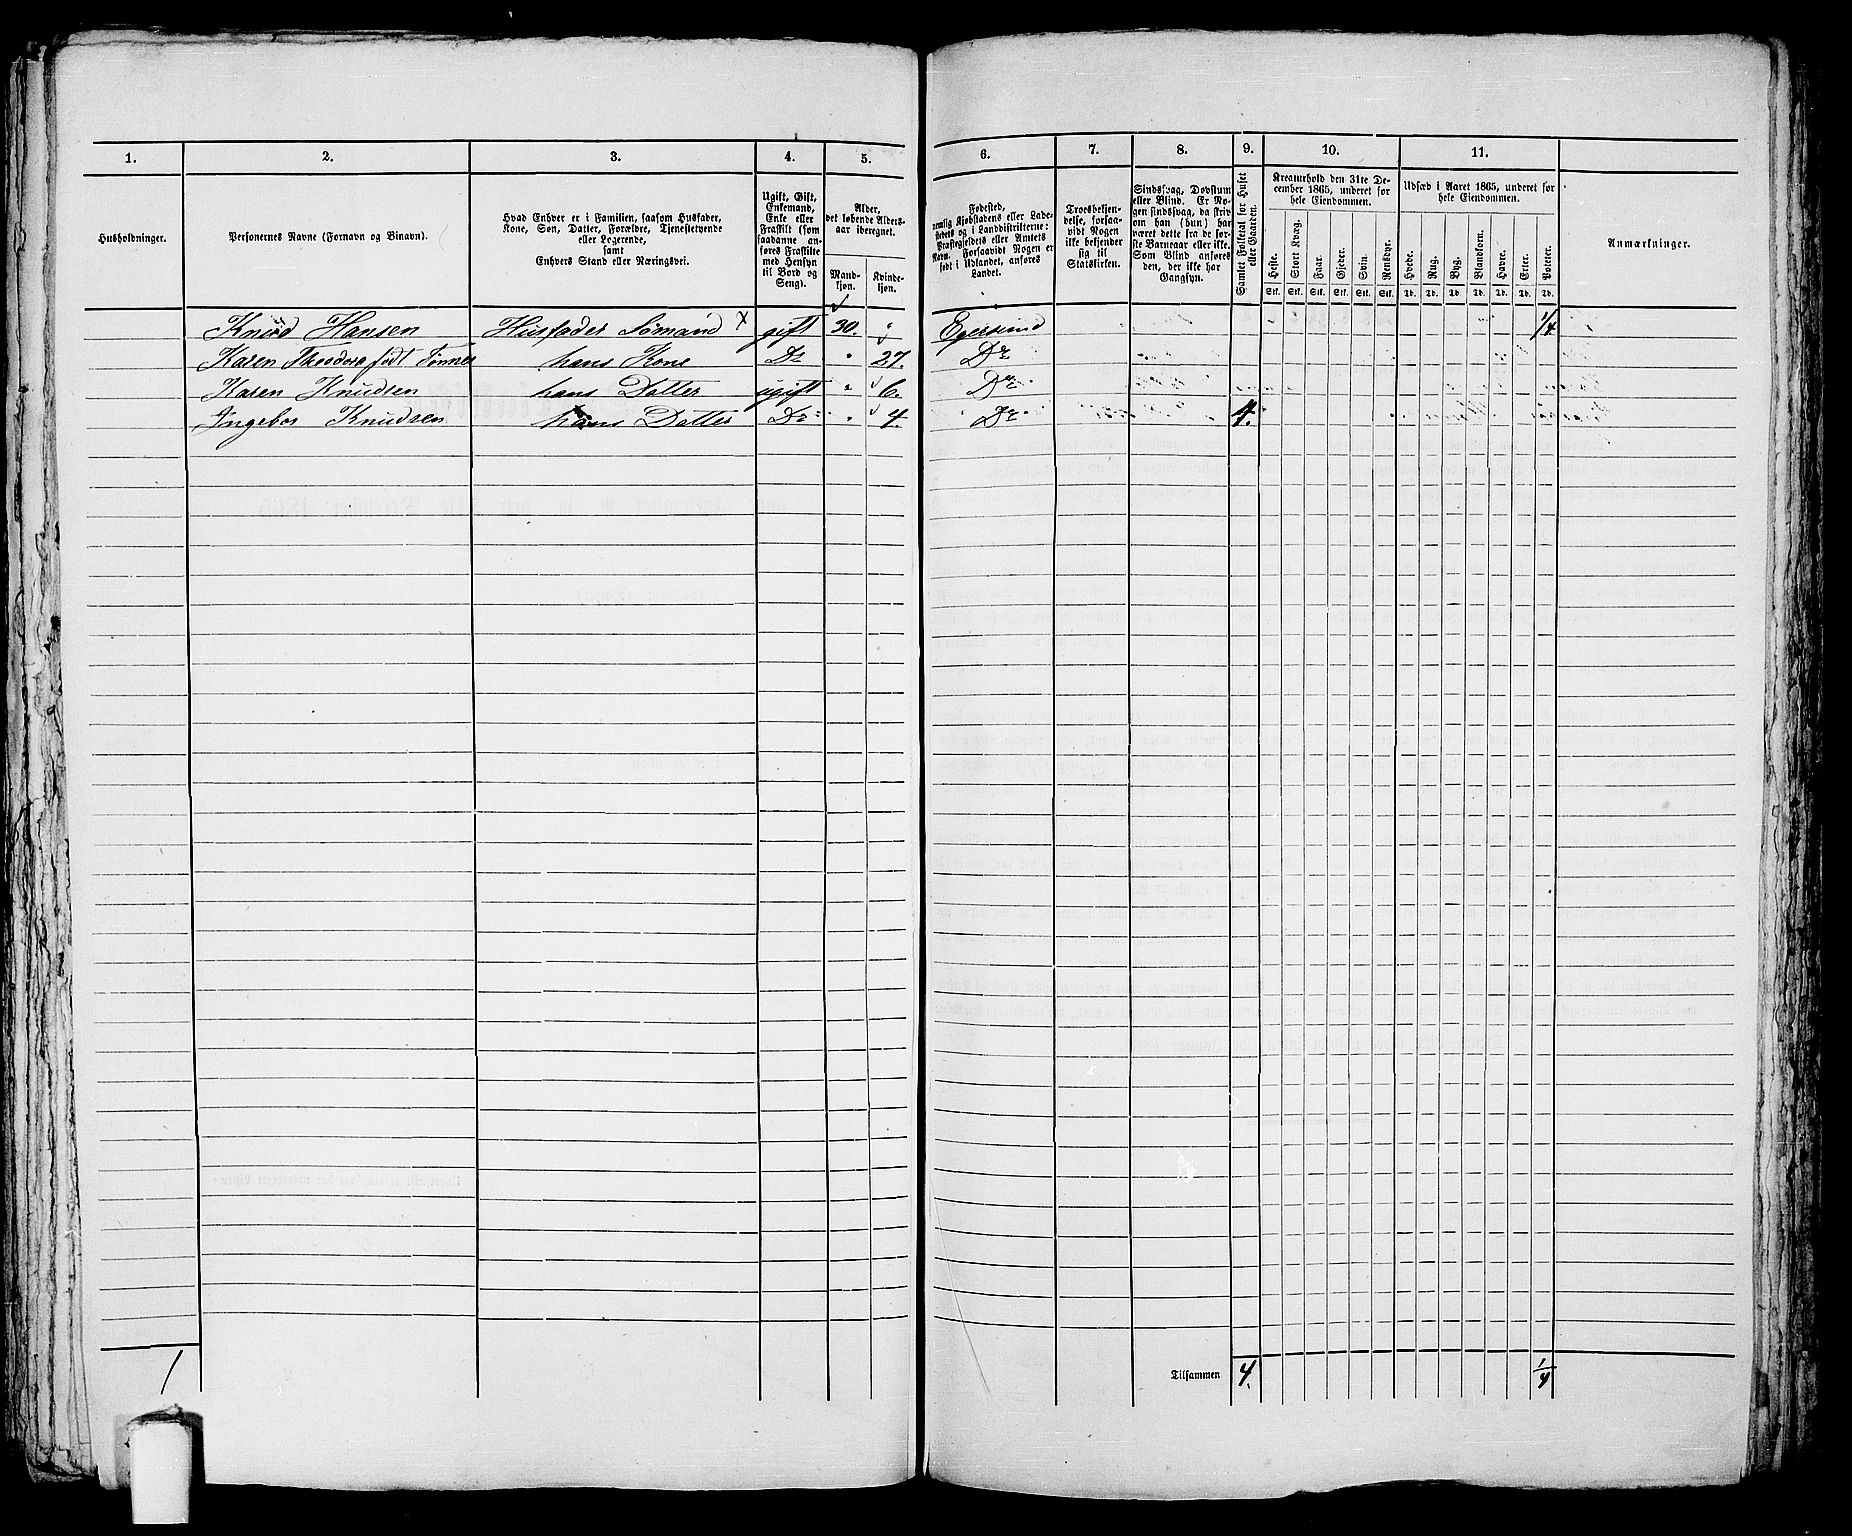 1.
2.
3.
4.
5.
6.
7.
8.
9.
10.
11.
Husholdninger.
Personernes Navne (Fornavn og Binavn).
Hvad Enhver er i Familien, saasom Husfader,
Kone, Søn, Datter, Forældre, Tjenestetyende
eller Logerende,
samt
Enhvers Stand eller Næringsvei.
Ugift, Gift,
Enkemand,
Enke eller
Fraskilt (som
saadanne an-
føres Fraskilte
med Hensyn
til Bord og
Seng).
Alder,
det løbende Alders-
aar iberegnet.
Mand-
kjøn.
Kvinde-
kjøn.
Fødested,
nemlig Kjøbstadens eller Lade-
stedets og i Landdistrikterne:
Præstegjeldets eller Amtets
Navn. Forsaavidt Nogen er
født i Udlandet, anføres
Landet.
Troesbekjen-
delse, forsaa-
vidt Nogen
ikke bekjender
sig til
Statskirken.
Sindssvag, Døvstum
eller Blind. Er No-
gen sindssvag, da skriv
om han (hun) har
været dette fra de før-
ste Barneaar eller ikke.
Som Blind anføres
den, der ikke har
Gangsyn.
Samlet Folketal for Huset
eller Gaarden.
Kreaturhold den 31te De-
cember 1865, underet for
hele Eiendommen.
Heste.
Stort Kvæg.
Faar.
Gjeder.
Svin.
Rensdyr.
Stk. Stk. Stk. Stk. Stk. Stk.
Udsæd i Aaret 1865, underet for
hele Eiendommen.
Hvede.
Rug.
Byg.
Blandkorn.
Havre.
Erter.
Poteter.
Td. Td. Td. Td. Td. Td. Td.
Anmærkninger.
Knud Hansen Husfader Sømand x gift 30. " Egersund 1/4
Karen Theodora født Tønnes hans Kone Do " 27. Do
Karen Knudsen hans Datter ugift " 6. Do
Ingebor Knudsen hans Datter Do " 4. Do 4.
1
Tilsammen 4. 1/4